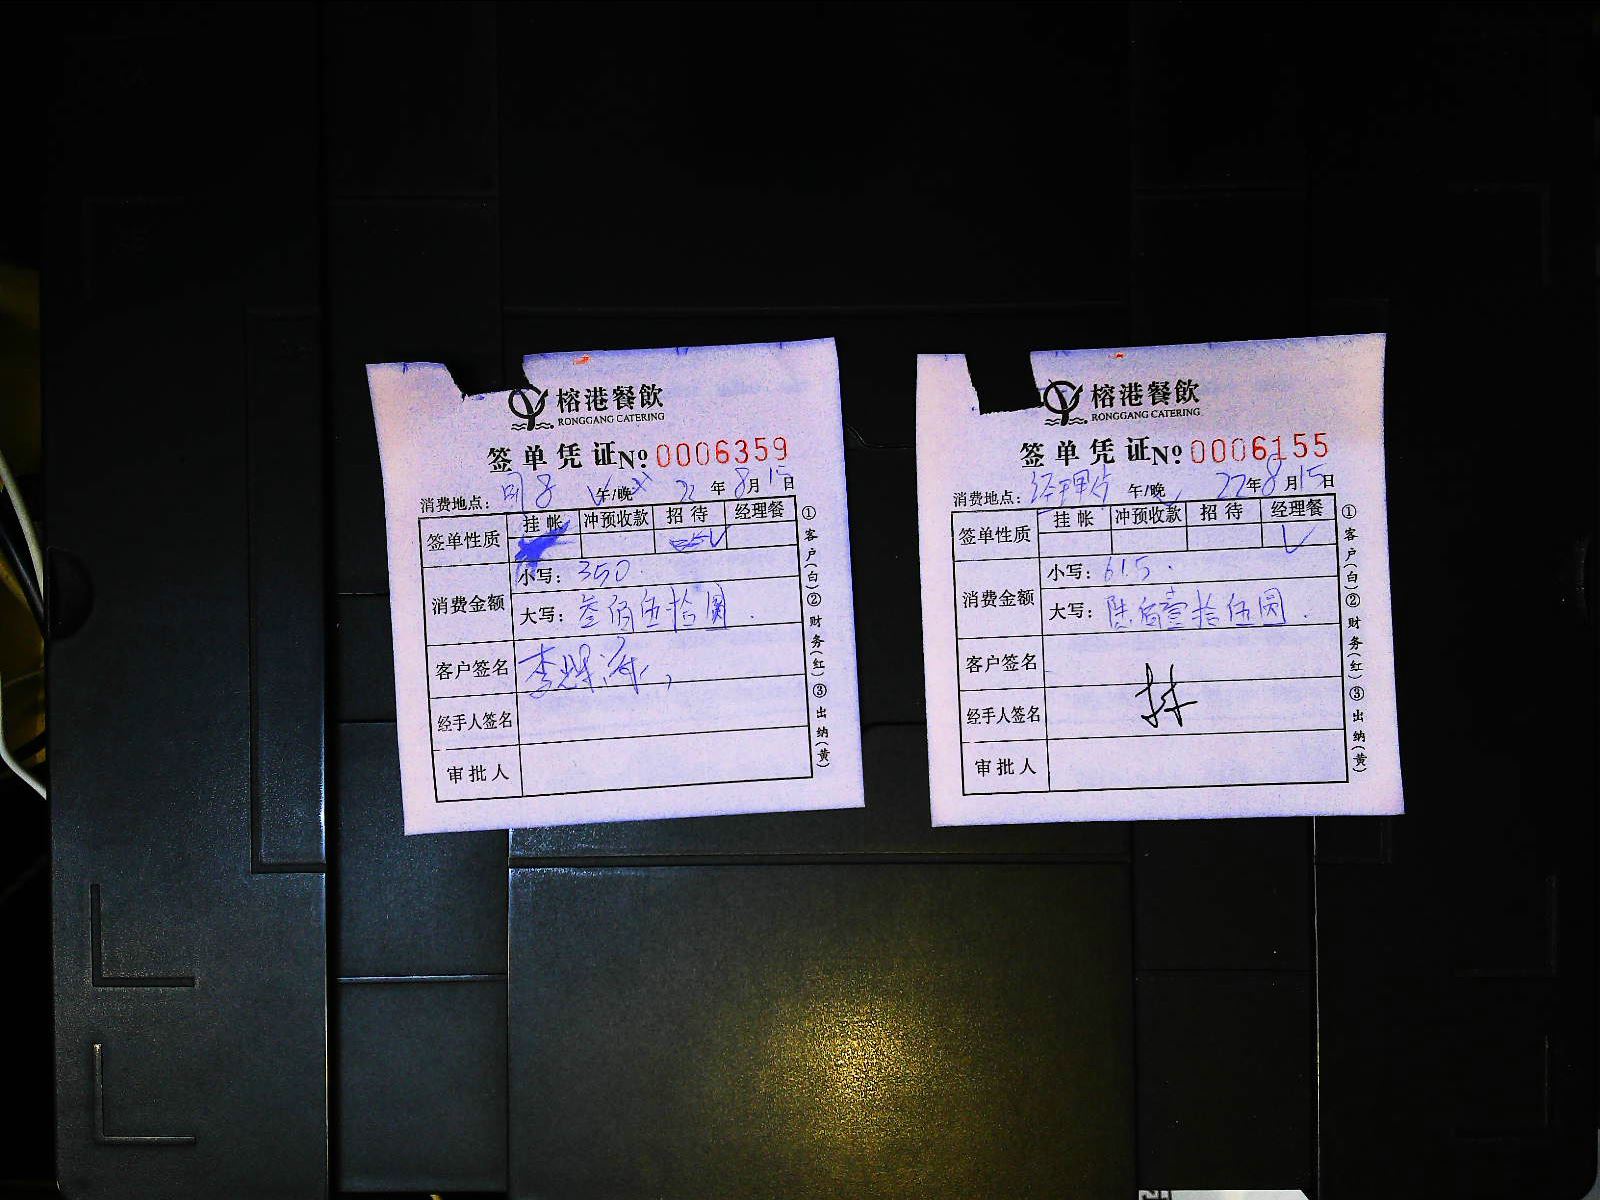 榕港餐飲
RONGGANG CATERING
签单凭证№ 0006359
消费地点： 午/晚 22年8月15日
签单性质 挂帐 冲预收款 招待 经理餐
消费金额 小写：350.
大写：叁佰伍拾圆.
客户签名 李
经手人签名
审批人
①客户(白)②财务(红)③出纳(黄)
榕港餐飲
RONGGANG CATERING
签单凭证№ 0006155
消费地点：经理 午/晚 22年8月15日
签单性质 挂帐 冲预收款 招待 经理餐
消费金额 小写：615.
大写：陆佰壹拾伍圆.
客户签名
经手人签名
审批人
①客户(白)②财务(红)③出纳(黄)